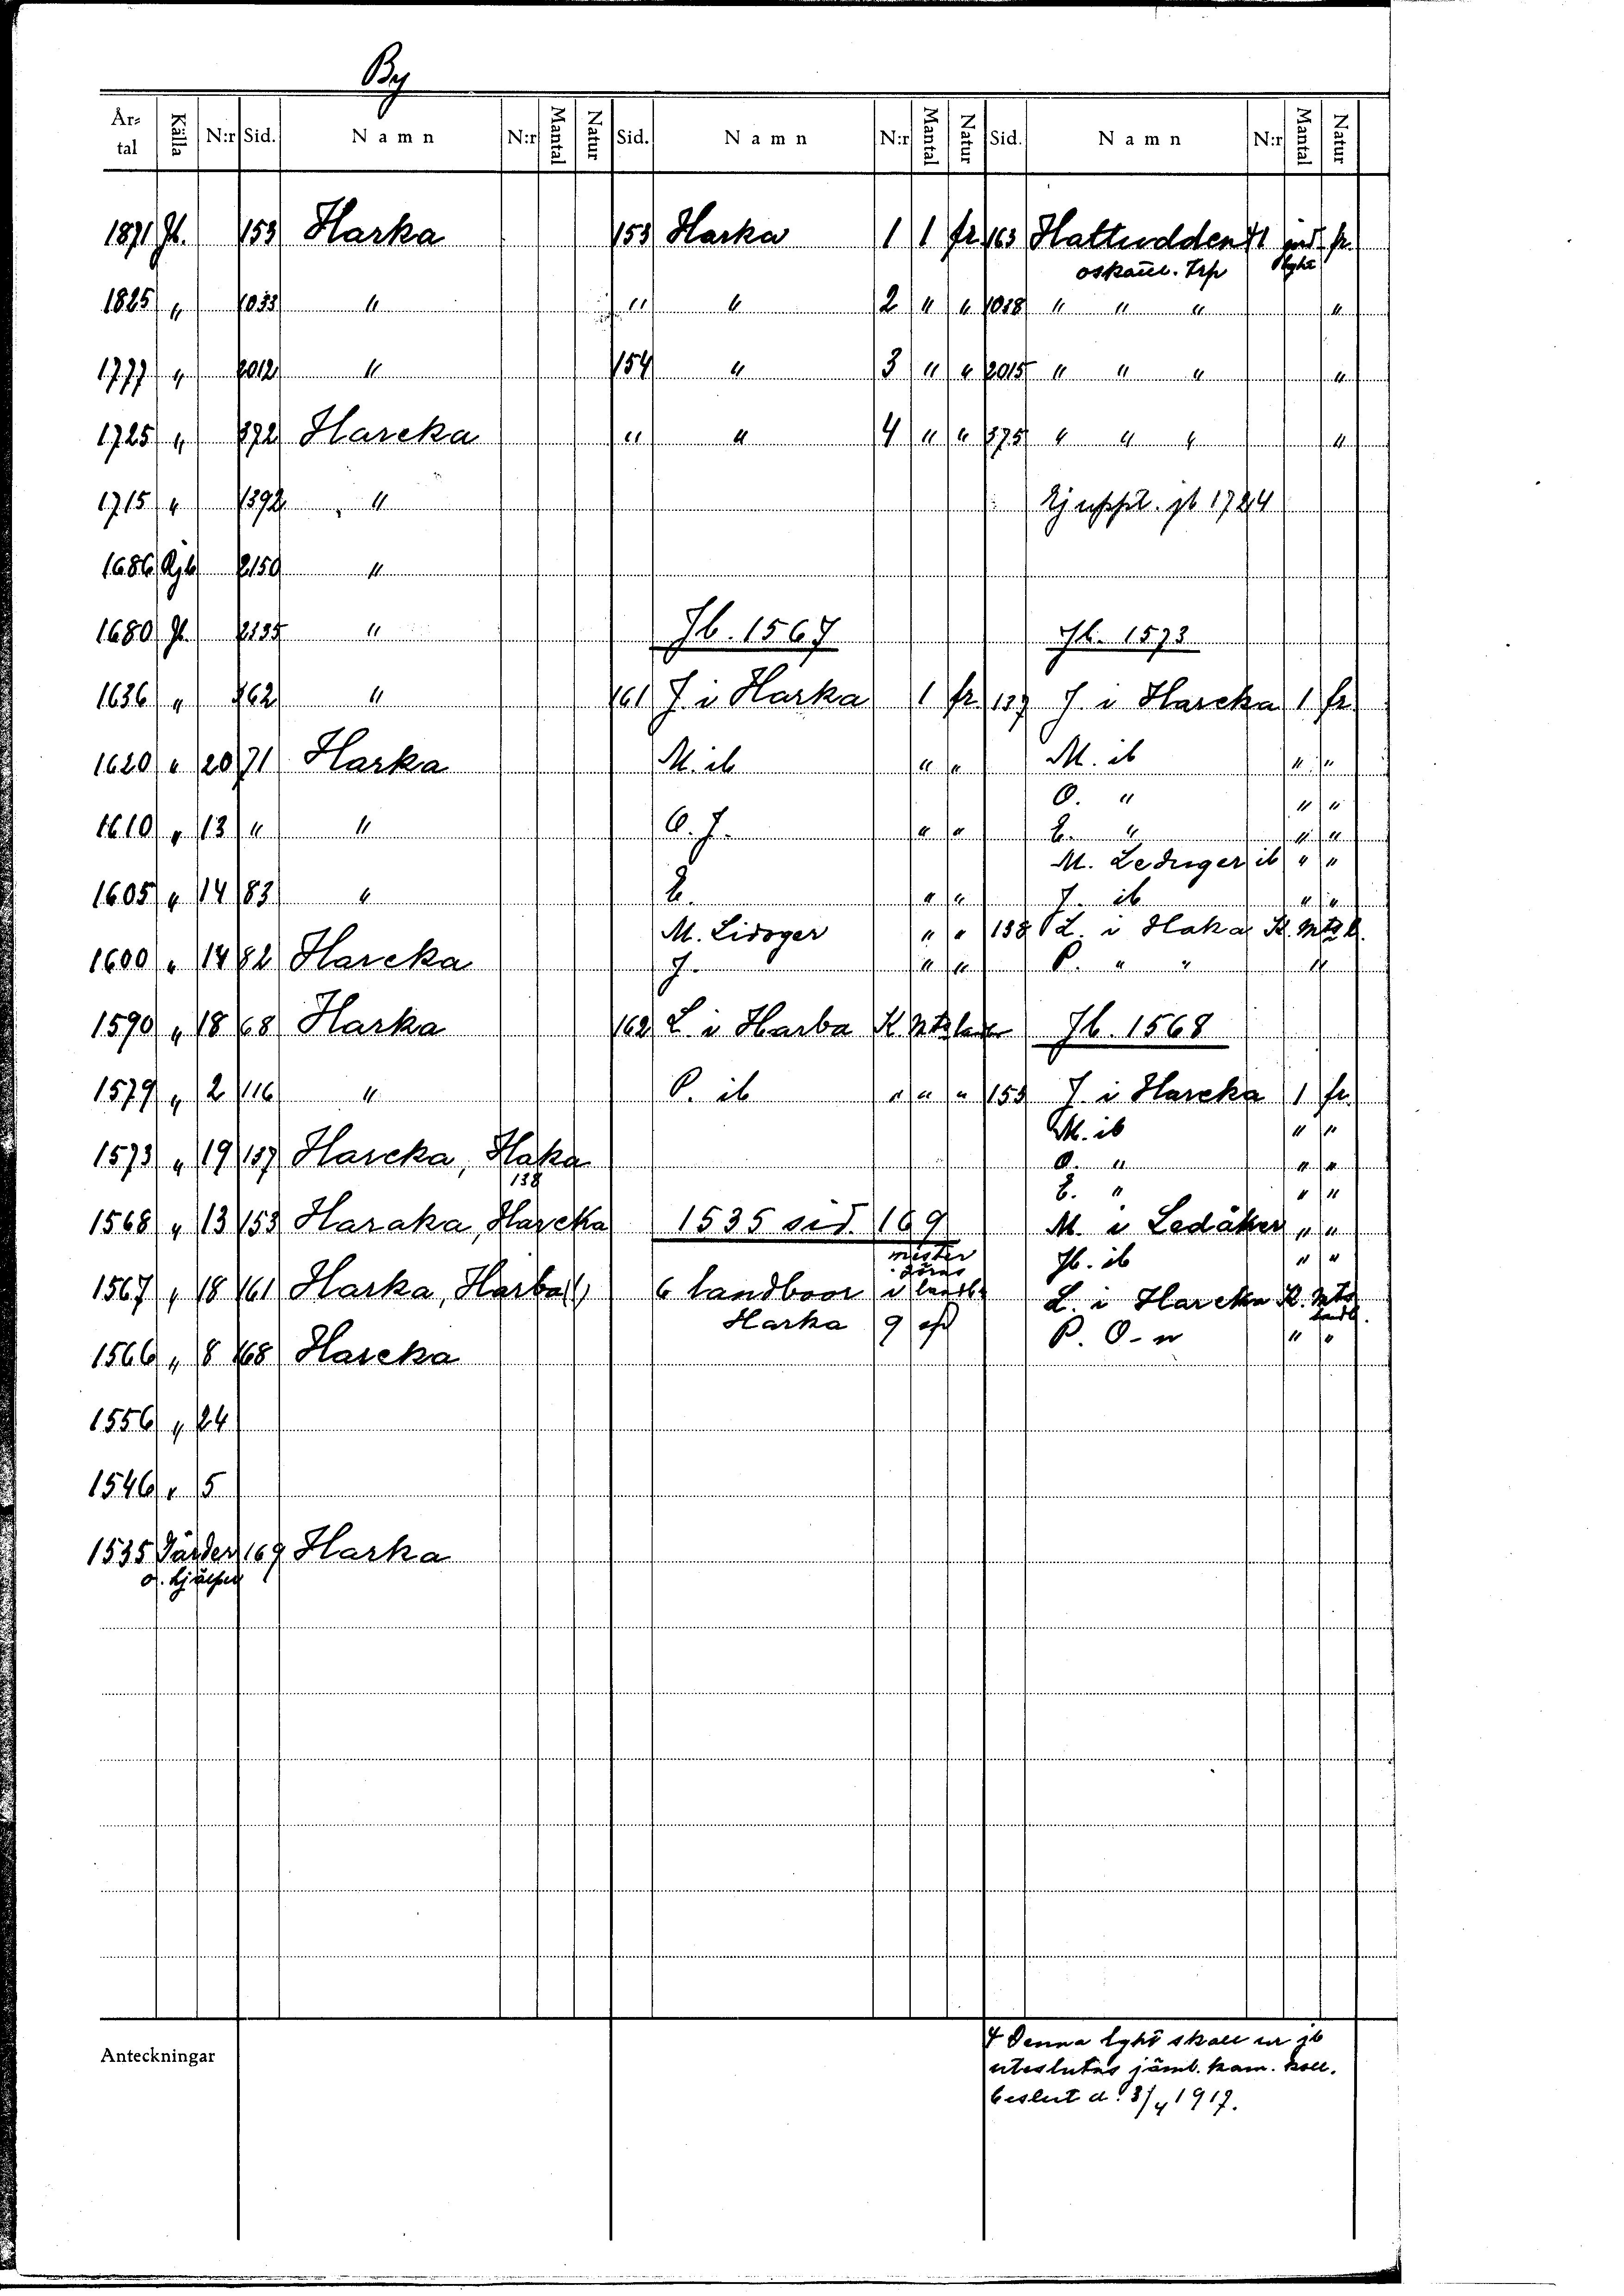 By
År-tal Källa N:r Sid. Namn N:r Mantal Natur Sid. Namn N:r Mantal Natur Sid. Namn N:r Mantal Natur
1871 Jb. 153 Harka 153 Harka 1 1 fr. 163 Hattudden 1 jord fr.
oskattl. Trp lght
1825 " 1033 " " " 2 " " 1038 " " " "
1777 " 2012 " 154 " 3 " " 2015 " " " "
1725 " 372 Harcka " " 4 " " 375 " " " "
1715 " 1392 " Ej uppt. jb 1724
1686 Rjb 2150 "
1680 Jb. 2135 " Jb. 1567 Jb. 1573
1636 " 562 " 161 J. i Harka 1 fr. 137 J. i Harcka 1 fr.
1620 " 20 71 Harka M. ib " " M. ib " "
O. " " "
1610 " 13 " " O. J. " " E. " " "
M. Leduger ib " "
1605 " 14 83 " E. " " J. ib " "
M. Lidoger " " 138 L. i Haka K. Mts l.
1600 " 14 82 Harcka J. " " P. " " "
1590 " 18 68 Harka 162 L. i Harba K. Mts Jb. 1568
1579 " 2 116 " P. ib " " " 153 J. i Harcka 1 fr.
M. ib " "
1573 " 19 137 Harcka, Haka O. " " "
138 E. " " "
1568 " 13 153 Haraka, Harcka 1535 sid. 169 M. i Ledåker " "
mister Jb. ib " "
1567 " 18 161 Harka, Harba(!) 6 landboor i L. i Harcka K. Mts
landb.
Harka 9 P. O-n " "
1566 " 8 168 Harcka
1556 " 24
1546 " 5
1535 Gärder 169 Harka
o. hjälper
Anteckningar
Denna lght skall ur jb
uteslutas jäml. kam. koll.
beslut d. 3/4 1917.